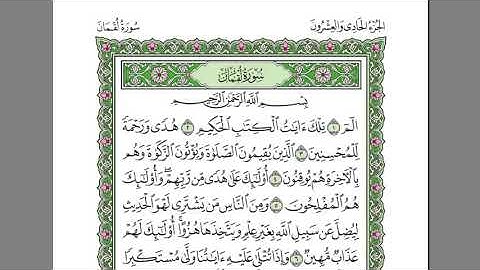 الجزء الحادي والعشرون
سورة لقمان
سُورَةُ لُقْمَانَ
بِسْمِ اللَّهِ الرَّحْمَٰنِ الرَّحِيمِ
الٓمٓ ١ تِلْكَ ءَايَٰتُ الْكِتَٰبِ الْحَكِيمِ ٢ هُدًى وَرَحْمَةً
لِّلْمُحْسِنِينَ ٣ الَّذِينَ يُقِيمُونَ الصَّلَوٰةَ وَيُؤْتُونَ الزَّكَوٰةَ وَهُم
بِالْءَاخِرَةِ هُمْ يُوقِنُونَ ٤ أُوْلَٰٓئِكَ عَلَىٰ هُدًى مِّن رَّبِّهِمْ وَأُوْلَٰٓئِكَ
هُمُ الْمُفْلِحُونَ ٥ وَمِنَ النَّاسِ مَن يَشْتَرِى لَهْوَ الْحَدِيثِ
لِيُضِلَّ عَن سَبِيلِ اللَّهِ بِغَيْرِ عِلْمٍ وَيَتَّخِذَهَا هُزُوًا أُوْلَٰٓئِكَ لَهُمْ
عَذَابٌ مُّهِينٌ ٦ وَإِذَا تُتْلَىٰ عَلَيْهِ ءَايَٰتُنَا وَلَّىٰ مُسْتَكْبِرًا